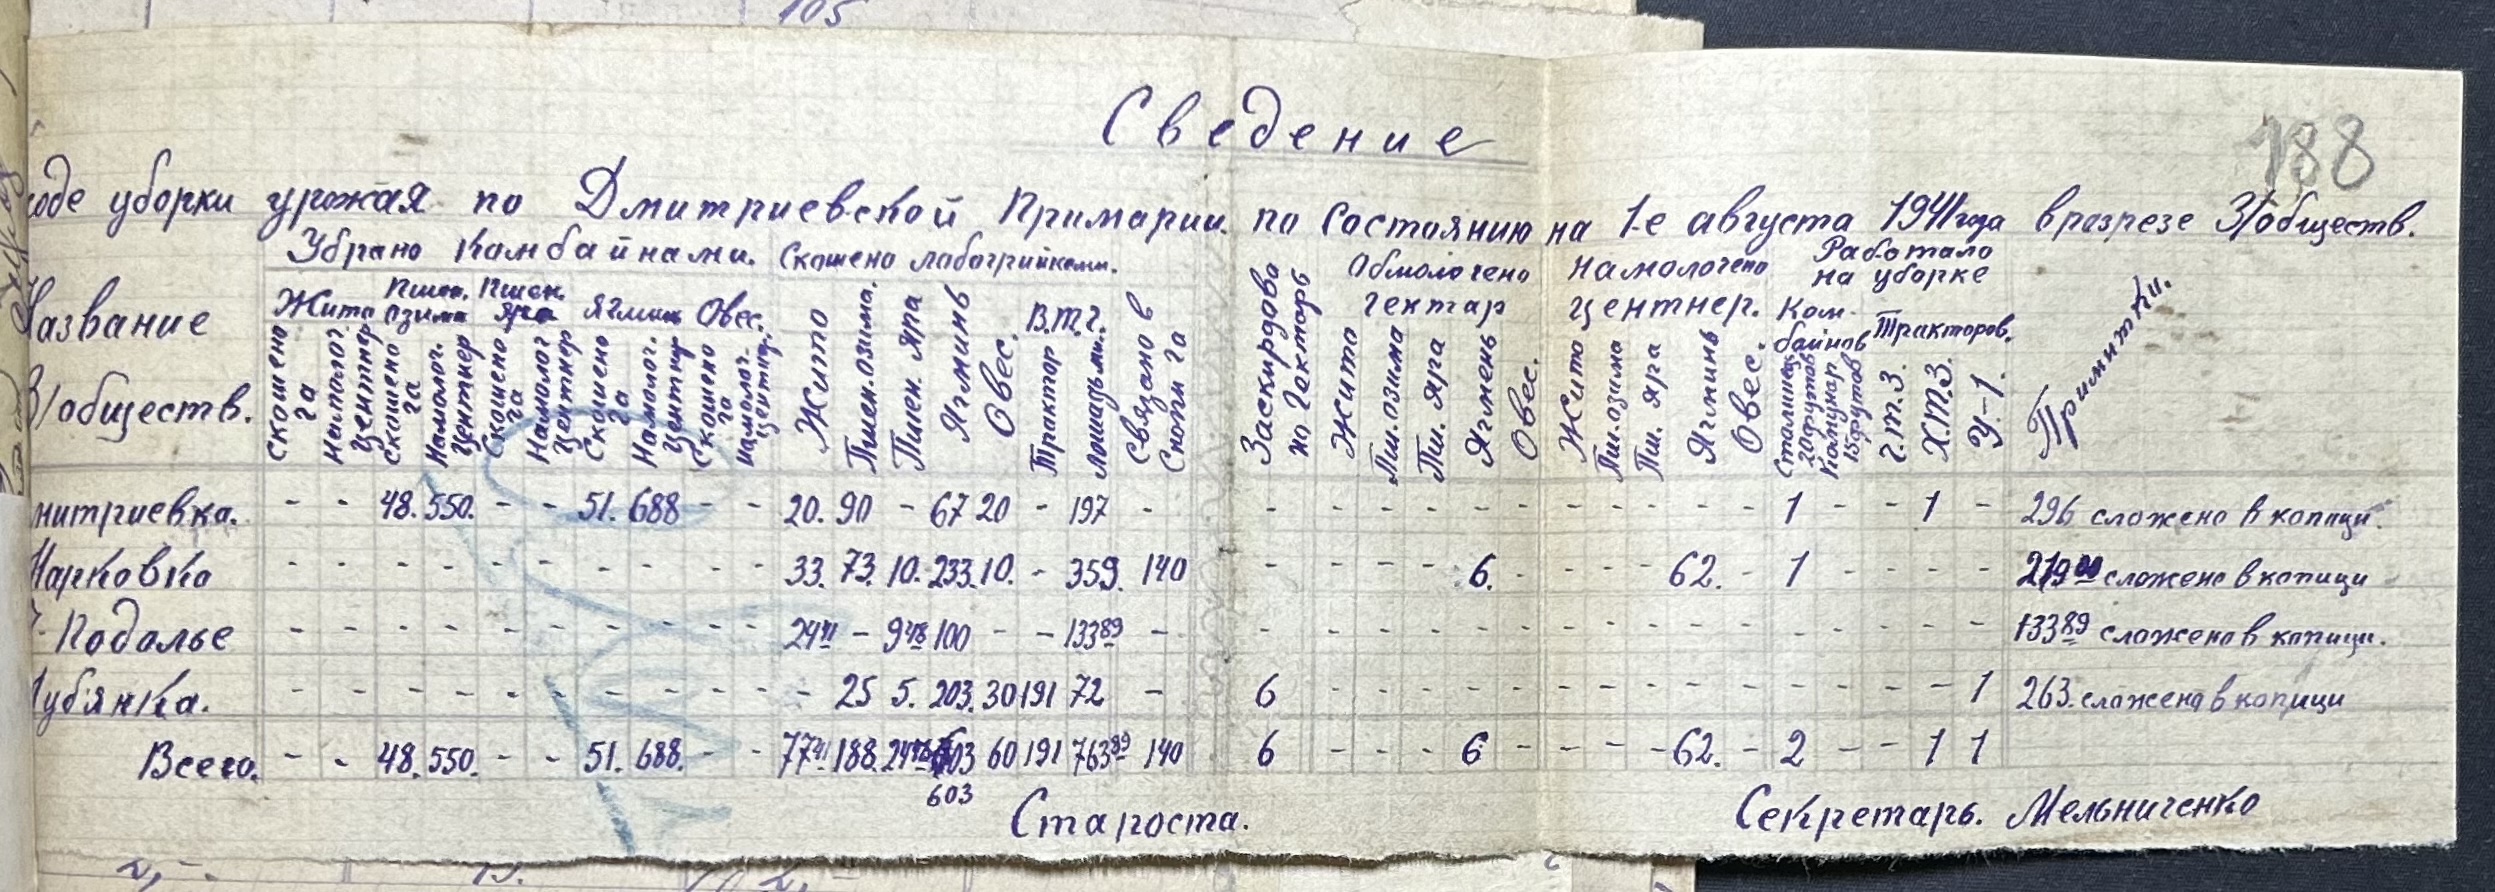 105
188
Сведение
ходе уборки урожая по Дмитриевской Примарии по состоянию на 1-е августа 1941 года в разрезе З/обществ.
Название З/обществ.
Убрано Комбайнами. Скошено лобогрийками. Обмолочено гектар Намолочено центнер. Работало на уборке Примитки.
Жито Пшен. озима Пшен. Яра Ягминь Овес. В.т.ч. Комбайнов Тракторов.
Скошено га Намолог. центнер Скошено га Намолог. Центнер Скошено га Намолог Центнер Скошено га Намолог. Центнер Скошено га Намолог. Центнер Жито Пшен. озима. Пшен. Яра Ягминь Овес. Трактор Лошадьми. Связано в Снопи га Заскирдовано гектаръ Жито Пш. озима Пш. яра Ягмень Овес. Жито Пш. озима Пш. яра Ягминь Овес. Сталинец 20 футов Комунар 15 футов Г.Т.З. Х.Т.З. У-1.
митриевка. - - 48. 550. - - 51. 688 - - 20. 90 - 67 20 - 197 - - - - - - - - - - - - 1 - - 1 - 296 сложено в копици.
Марковка - - - - - - - - - - 33. 73. 10. 233. 10. - 359. 140 - - - - 6. - - - - 62. - 1 - - - - 219 сложено в копици
Подолье - - - - - - - - - - 24 41 - 9 48 100 - - 133 89 - - - - - - - - - - - - - - - - - 133 89 сложено в копици.
Лубянка. - - - - - - - - - - - 25 5. 203. 30 191 72 - 6 - - - - - - - - - - - - - - 1 263. сложено в копици
Всего. - - 48. 550. - - 51. 688. - - 77 41 188. 24 48 603 60 191 763 89 140 6 - - - 6 - - - - 62. - 2 - - 1 1
603
Староста. Секретарь. Мельниченко